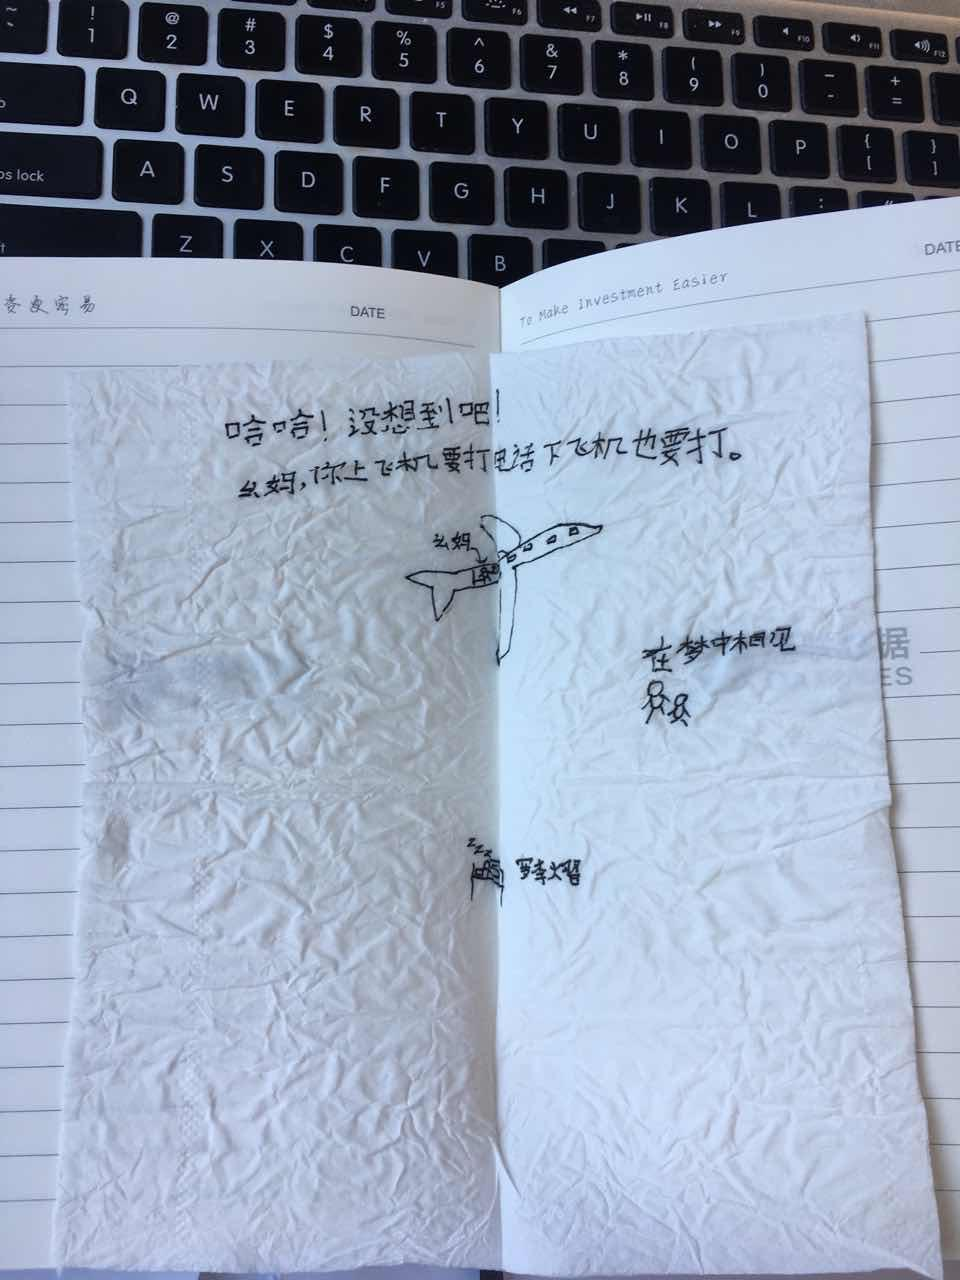 ! 1
@ 2
# 3
$ 4
% 5
^ 6
& 7
* 8
( 9
) 0
- -
+ =
F5 F6 F7 F8 F9 F10 F11 F12
Q W E R T Y U I O P { [ } ]
caps lock
A S D F G H J K L :
Z X C V B
更容易
DATE
To Make Investment Easier
DATE
哈哈！没想到吧！
么妈，你上飞机要打电话下飞机也要打。
么妈
在梦中相见
据
ES
zzz